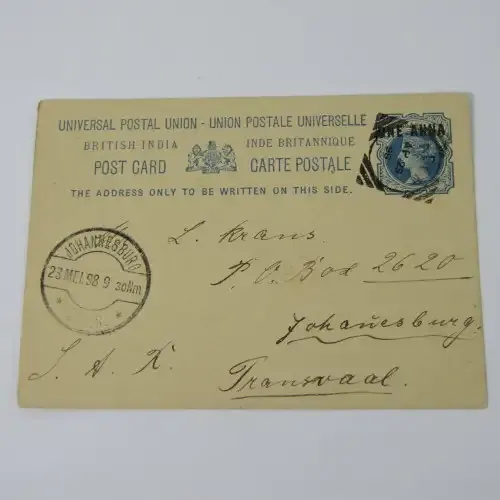 UNIVERSAL POSTAL UNION - UNION POSTALE UNIVERSELLE
BRITISH INDIA INDE BRITANNIQUE
POST CARD CARTE POSTALE
THE ADDRESS ONLY TO BE WRITTEN ON THIS SIDE.
ONE ANNA
L. Krans.
P.O. Box 2620
Johañesburg.
Transvaal.
S. A. R.
JOHANNESBURG
23 MEI. 98 9